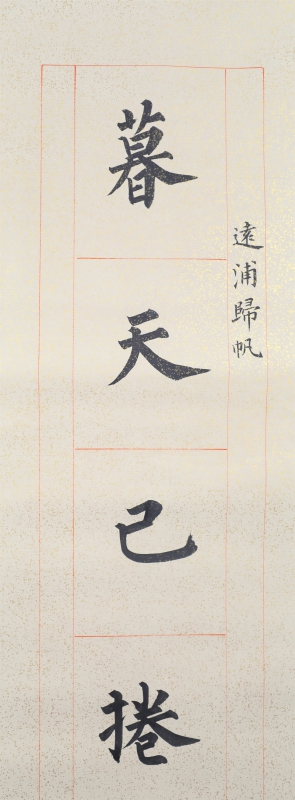 遠浦歸帆
暮天已捲